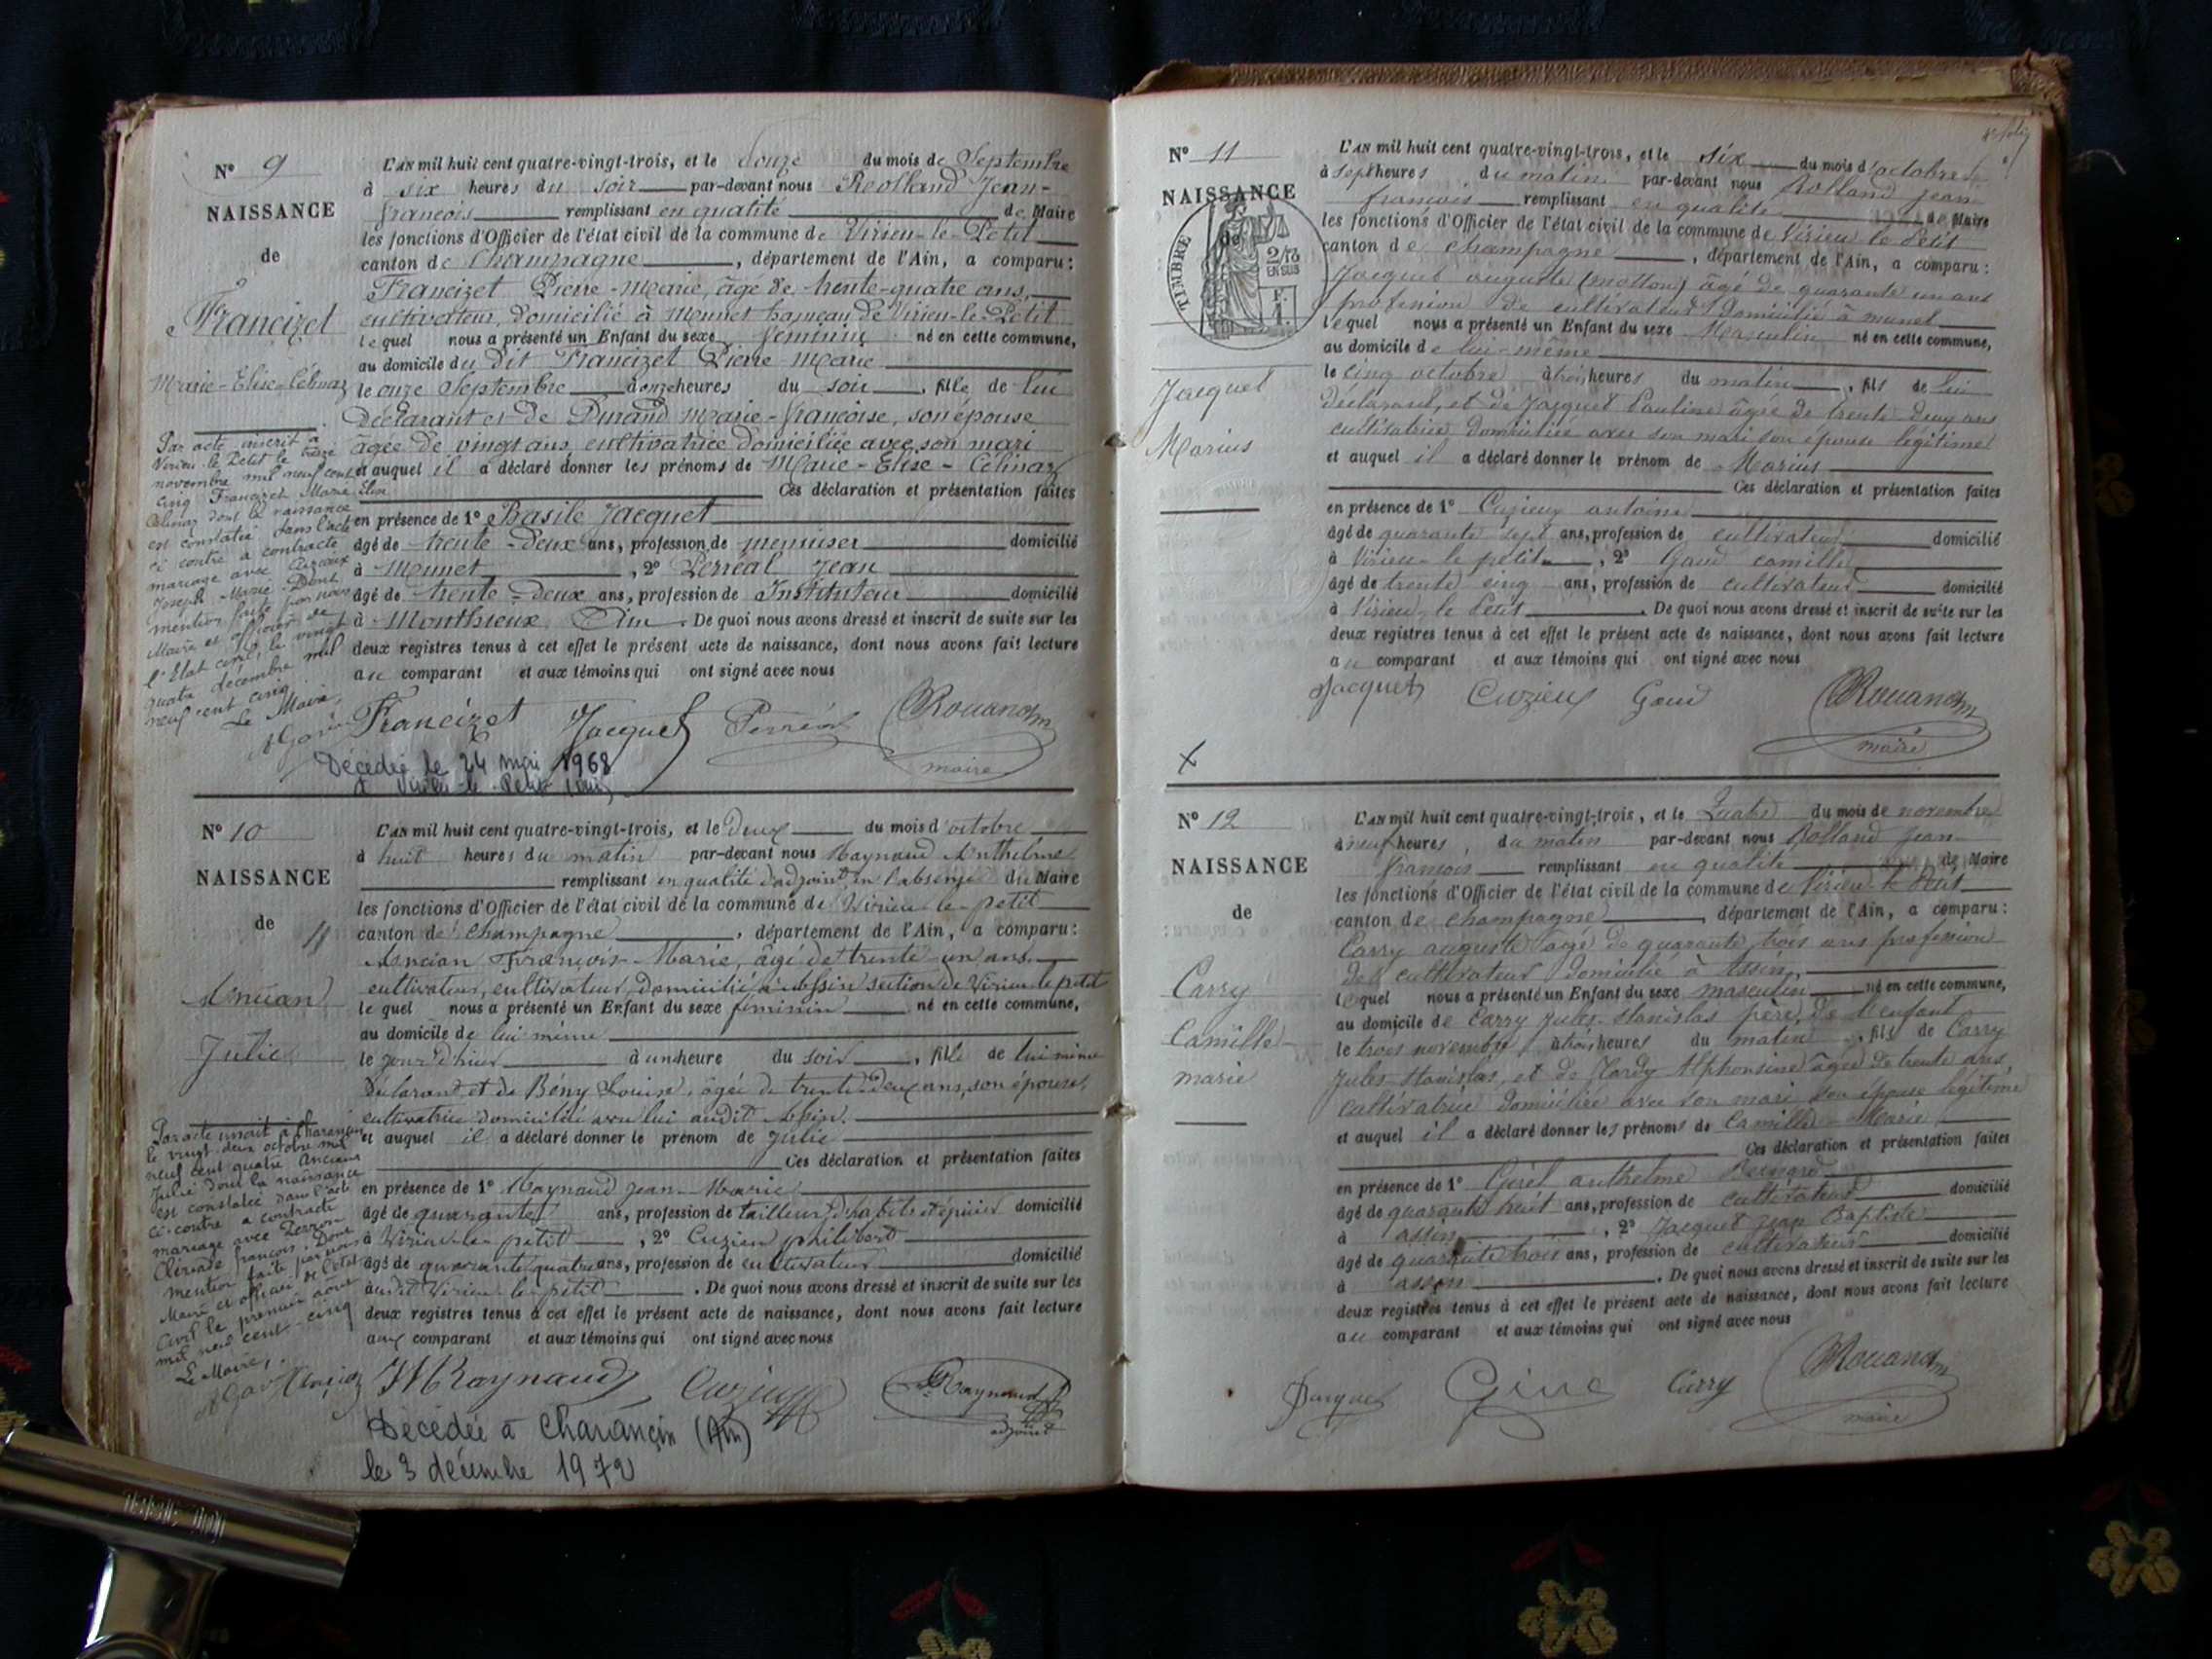 N° 9
NAISSANCE
de
Francizet
Marie-Elise-Célinaz
L'AN mil huit cent quatre-vingt-trois, et le douze du mois de Septembre
à six heures du soir par-devant nous Rolland Jean-
françois remplissant en qualité de Maire
les fonctions d'Officier de l'état civil de la commune de Virieu-le-Petit
canton de Champagne, département de l'Ain, a comparu:
Francizet Pierre-Marie, âgé de trente-quatre ans,
cultivateur, domicilié à Munet hameau de Virieu-le-Petit
lequel nous a présenté un Enfant du sexe féminin né en cette commune,
au domicile du dit Francizet Pierre-Marie
le onze Septembre à onze heures du soir, fille de lui
Déclarant et de Durand Marie-françoise, son épouse
âgée de vingt ans, cultivatrice domiciliée avec son mari
et auquel il a déclaré donner les prénoms de Marie-Elise-Célinaz
Ces déclaration et présentation faites
en présence de 1° Basile Jacquet
âgé de trente-deux ans, profession de menuiser domicilié
à Munet, 2° Perréal Jean
âgé de trente-deux ans, profession de Instituteur domicilié
à Monthieux Ain. De quoi nous avons dressé et inscrit de suite sur les
deux registres tenus à cet effet le présent acte de naissance, dont nous avons fait lecture
au comparant et aux témoins qui ont signé avec nous
Francizet Jacquet Perréal Rolland
maire
Par acte inscrit à
Virieu-le-Petit le treize
novembre mil neuf cent
cinq Francizet Marie Elise
Célinaz dont la naissance
est constatée dans l'acte
ci contre a contracté
mariage avec
Joseph Marie. Dont
mention faite par nous
Maire et officier de
l'Etat civil, le vingt
quatre décembre mil
neuf cent cinq
Le Maire,
Décédée le 24 mai 1968
à Virieu-le-Petit (Ain)
N° 10
NAISSANCE
de
Ancian
Julie
L'AN mil huit cent quatre-vingt-trois, et le deux du mois d'octobre
à huit heures du matin par-devant nous Raynaud Anthelme
remplissant en qualité d'adjoint en l'absence du Maire
les fonctions d'Officier de l'état civil de la commune de Virieu-le-petit
canton de champagne, département de l'Ain, a comparu:
Ancian François-Marie, âgé de trente-un ans,
cultivateur, cultivateur, domicilié à Assin section de Virieu le petit
lequel nous a présenté un Enfant du sexe féminin né en cette commune,
au domicile de lui même
le jour d'hier à une heure du soir, fille de lui même
Déclarant et de Bény Louise, âgée de trente-deux ans, son épouse,
cultivatrice domiciliée avec lui audit Assin.
et auquel il a déclaré donner le prénom de Julie
Ces déclaration et présentation faites
en présence de 1° Raynaud Jean-Marie
âgé de quarante ans, profession de tailleur d'habits et épicier domicilié
à Virieu-le-petit, 2° Cuzieu philibert
âgé de quarante quatre ans, profession de cultivateur domicilié
audit Virieu-le-petit. De quoi nous avons dressé et inscrit de suite sur les
deux registres tenus à cet effet le présent acte de naissance, dont nous avons fait lecture
aux comparant et aux témoins qui ont signé avec nous
Ancian JMRaynaud Cuzieu Raynaud
adjoint
Par acte inscrit à Charancin
le vingt-deux octobre mil
neuf cent quatre Anciana
Julie dont la naissance
est constatée dans l'acte
ci-contre a contracté
mariage avec Perron
françois. Dont
mention faite par nous
Maire et officier de l'état
Civil le premier août
mil neuf cent-cinq
Le Maire,
Décédée à Charancin (Ain)
le 3 décembre 1972
N° 11
NAISSANCE
de
TIMBRE
2/10
EN SUS
Jacquet
Marius
L'AN mil huit cent quatre-vingt-trois, et le six du mois d'octobre
à sept heures du matin par-devant nous Rolland Jean
françois remplissant en qualité de Maire
les fonctions d'Officier de l'état civil de la commune de Virieu le Petit
canton de champagne, département de l'Ain, a comparu:
Jacquet auguste (motton) âgé de quarante un ans
profession de cultivateur domicilié à munet
lequel nous a présenté un Enfant du sexe Masculin né en cette commune,
au domicile de lui-même
le cinq octobre à trois heures du matin, fils de lui
déclarant, et de Jacquet Pauline âgée de trente deux ans
cultivatrice domiciliée avec son mari son épouse légitime
et auquel il a déclaré donner le prénom de Marius
Ces déclaration et présentation faites
en présence de 1° Cuzieux antoine
âgé de quarante sept ans, profession de cultivateur domicilié
à Virieu-le petit, 2° Goud camille
âgé de trente cinq ans, profession de cultivateur domicilié
à Virieu-le Petit. De quoi nous avons dressé et inscrit de suite sur les
deux registres tenus à cet effet le présent acte de naissance, dont nous avons fait lecture
au comparant et aux témoins qui ont signé avec nous
Jacquet Cuzieux Goud Rolland
maire
N° 12
NAISSANCE
de
Carry
Camille
marie
L'AN mil huit cent quatre-vingt-trois, et le Quatre du mois de novembre
à neuf heures, du matin par-devant nous Rolland Jean
françois remplissant en qualité de Maire
les fonctions d'Officier de l'état civil de la commune de Virieu-le Petit
canton de champagne, département de l'Ain, a comparu:
Carry auguste âgé de quarante trois ans profession
de cultivateur domicilié à Assin,
lequel nous a présenté un Enfant du sexe masculin né en cette commune,
au domicile de Carry Jules-Stanislas père, de l'enfant
le trois novembre à trois heures du matin, fils de Carry
Jules-Stanislas, et de Tardy Alphonsine âgée de trente ans,
cultivatrice domiciliée avec son mari son épouse légitime
et auquel il a déclaré donner les prénoms de Camille-Marie
Ces déclaration et présentation faites
en présence de 1° anthelme Bernard
âgé de quarante huit ans, profession de cultivateur domicilié
à assin, 2° Jacquet Jean Baptiste
âgé de quarante trois ans, profession de cultivateur domicilié
à assin. De quoi nous avons dressé et inscrit de suite sur les
deux registres tenus à cet effet le présent acte de naissance, dont nous avons fait lecture
au comparant et aux témoins qui ont signé avec nous
Jacquet Carry Rolland
maire